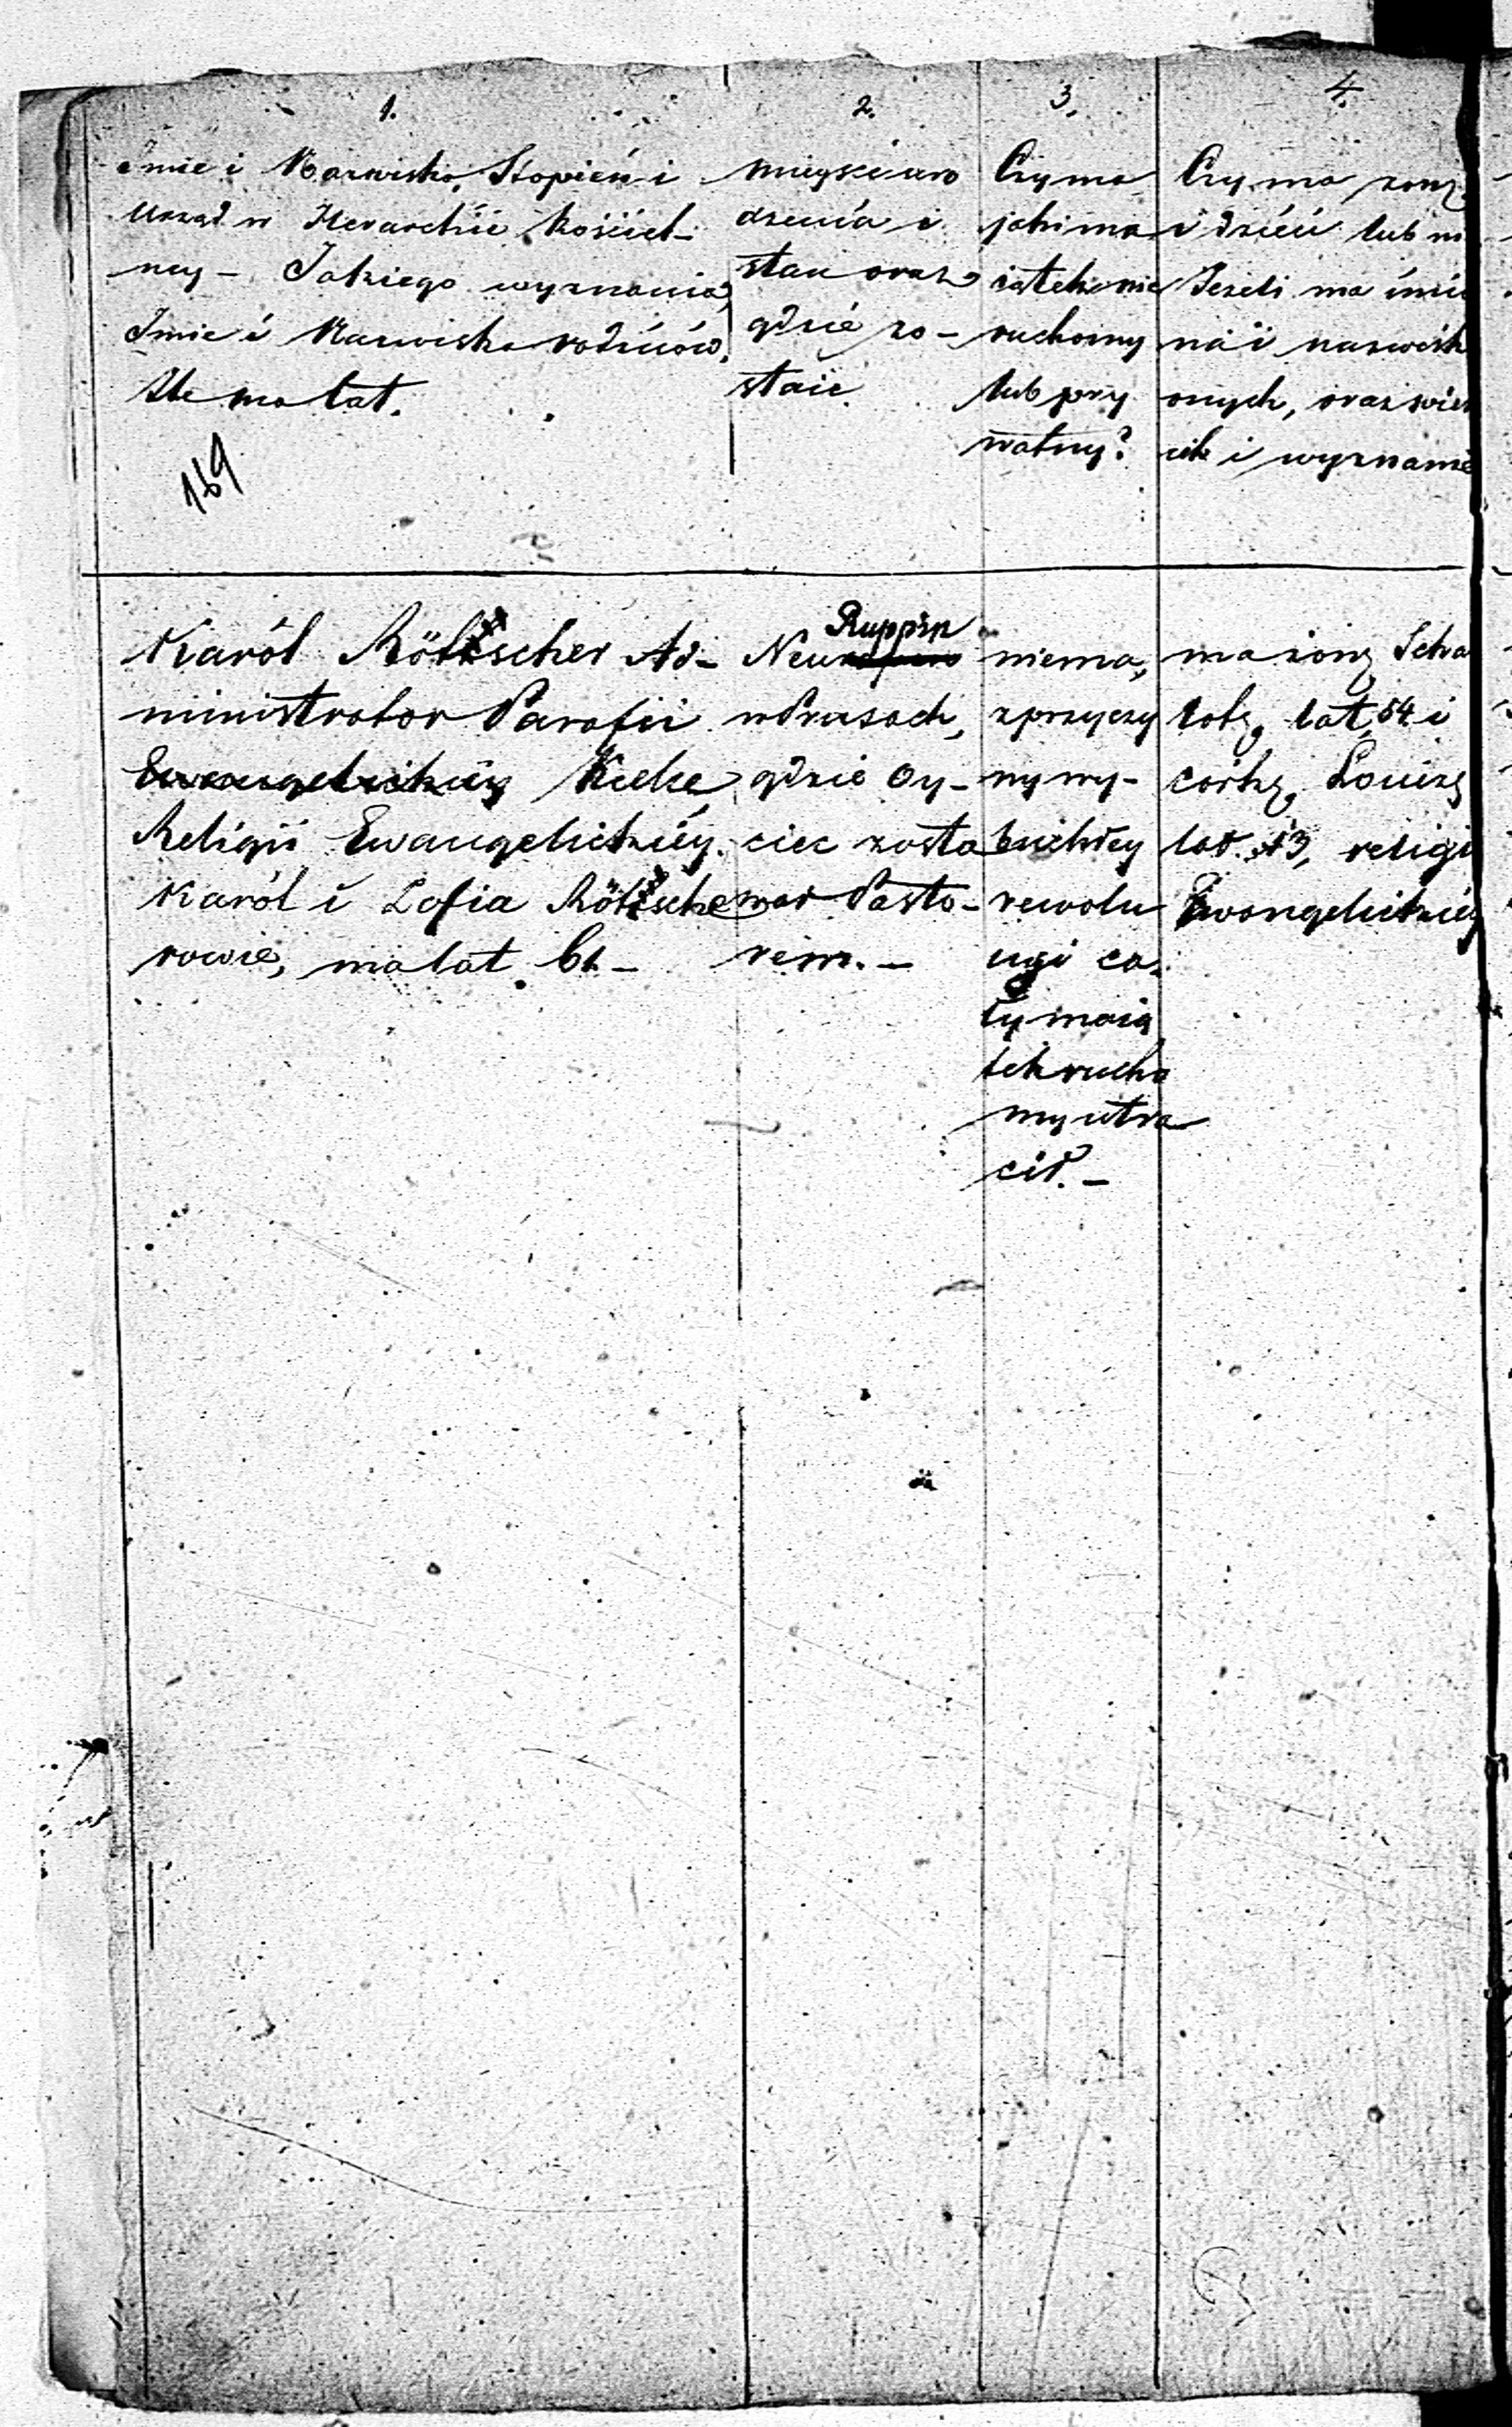 1.
Imie i Nazwisko, Stopień i
Urząd w Hierarchii kościel-
ney - Jakiego wyznania,
Imie i Nazwisko rodziców,
Ile ma lat.
169
2.
mieysce uro
dzenia i
stan oraz
gdzie zo-
staie.
3.
Czy ma
jaki ma
iątek nie
ruchomy
lub pry
watny?
4.
Czy ma żonę
i dzieci lub ni
Jeżeli ma imio
na i nazwisk
onych, oraz wie
ich i wyznanie
Karól Rötscher Ad-
ministrator Parafii
Ewangelickiéy Kielce,
Religii Ewangelickiéy.
Karól i Zofia Rötsche
rowie, ma lat 61 -
Ruppin
Neu
w Prusach,
gdzie Oy-
ciec zosta
wał Pasto-
rem. -
niema,
z przyczy
ny wy-
buchłey
rewolu
cyi ca-
ły maią
tek rucho
my utra
cił. -
ma żonę Scha
lotę, lat 54 i
corkę, Louizę
lat 13, religi
Ewangelickiéy